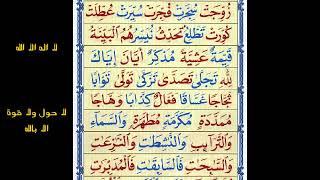 لا اله الا الله
لا حول ولا قوة
الا بالله
زُوِّجَتْ سُجِّرَتْ فُجِّرَتْ سُيِّرَتْ عُطِّلَتْ
كُوِّرَتْ تَطَّلِعُ تُحَدِّثُ نُيَسِّرُ هُمُ الْبَيِّنَةُ
قَيِّمَةٌ عَشِيَّةً مُذَكِّرٌ أَيَّانَ إِيَّاكَ
لِلّٰهِ تَجَلّٰى تَصَدّٰى تَزَكّٰى تَوَلّٰى تَوَّابًا
ثَجَّاجًا غَسَّاقًا فَعَّالٌ كِذَّابًا وَهَّاجًا
مُمَدَّدَةٍ مُكَرَّمَةٍ مُطَهَّرَةٍ وَالسَّمَآءِ
وَالتَّرَآئِبِ وَالنّٰشِطٰتِ وَالنّٰزِعٰتِ
وَالسّٰبِحٰتِ فَالسّٰبِقٰتِ فَالْمُدَبِّرٰتِ